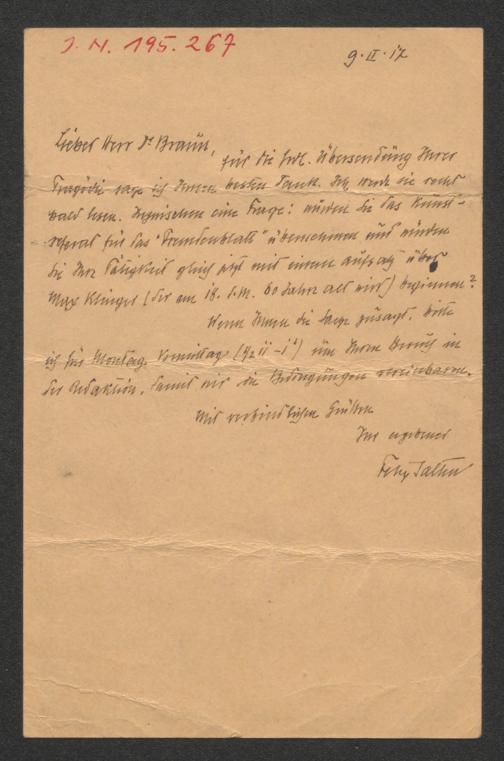 J. N. 195.267
9. II. 17
Lieber Herr Dr Braun,
für die frdl. Übersendung Ihrer
Tragödie sage ich Ihnen besten Dank. Ich werde sie recht
bald lesen. Inzwischen eine Frage: würden Sie das Kunst-
referat für das "Fremdenblatt" übernehmen und würden
Sie Ihre Tätigkeit gleich jetzt mit einem Aufsatz über
Max Klinger (der am 18. d. M. 60 Jahre alt wird) beginnen?
Wenn Ihnen die Sache zusagt, bitte
ich für Montag Vormittag (½ 11 - 1h) um Ihren Besuch in
der Redaktion, damit wir die Bedingungen vereinbaren.
Mit verbindlichen Grüßen
Ihr ergebener
Felix Salten